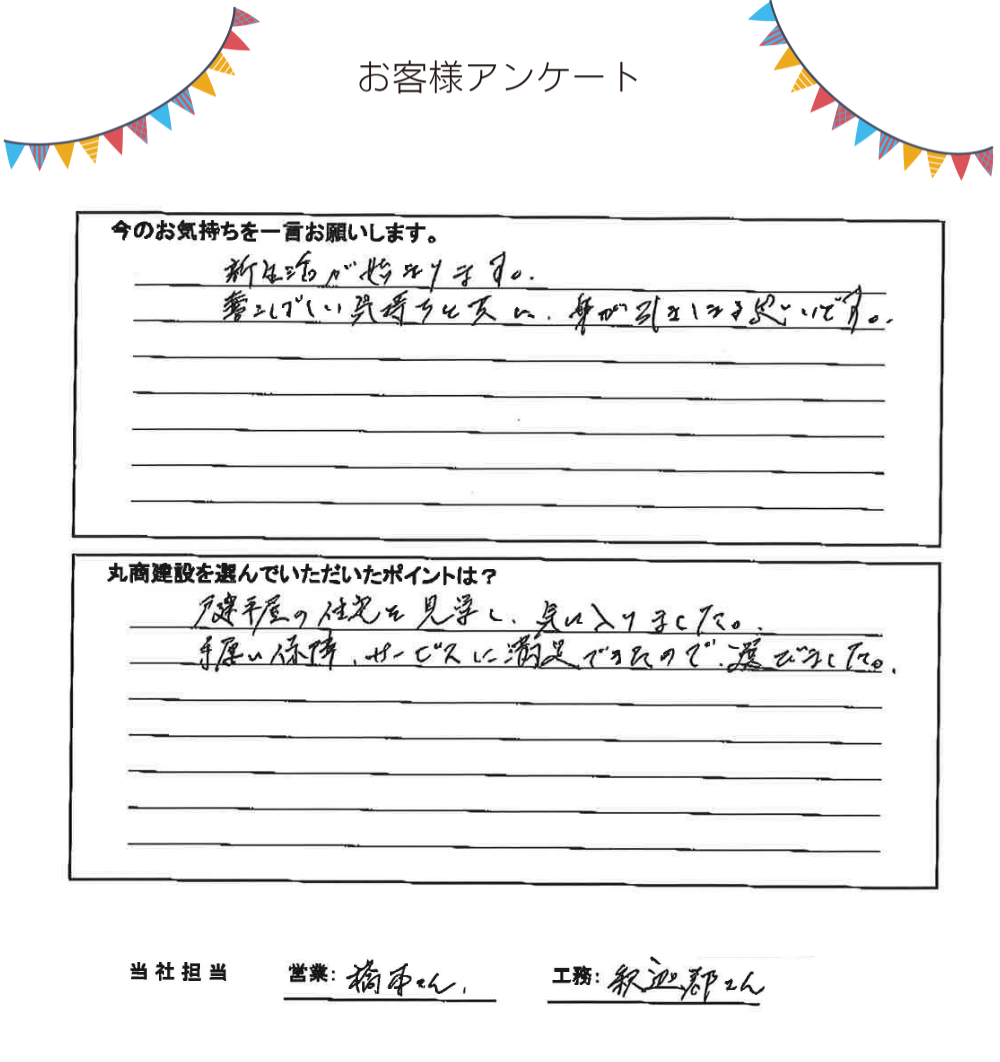 お客様アンケート
今のお気持ちを一言お願いします。
新生活が始まります。
喜こばしい気持ちと共に、身が引きしまる思いです。
丸商建設を選んでいただいたポイントは?
戸建平屋の住宅を見学し、気に入りました。
手厚い保障、サービスに満足できたので、選びました。
当社担当 営業: 橋本さん. 工務: 釈迦郡さん